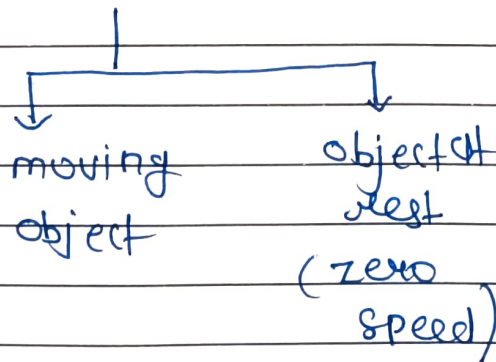 moving
object
object at
rest
(zero
speed)